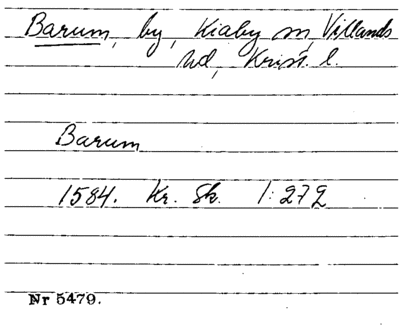 Barum, by, Kiaby sn, Villands
hd, Krist. l.
Barum
1584. Kr. Sk. 1:272
Nr 5479.